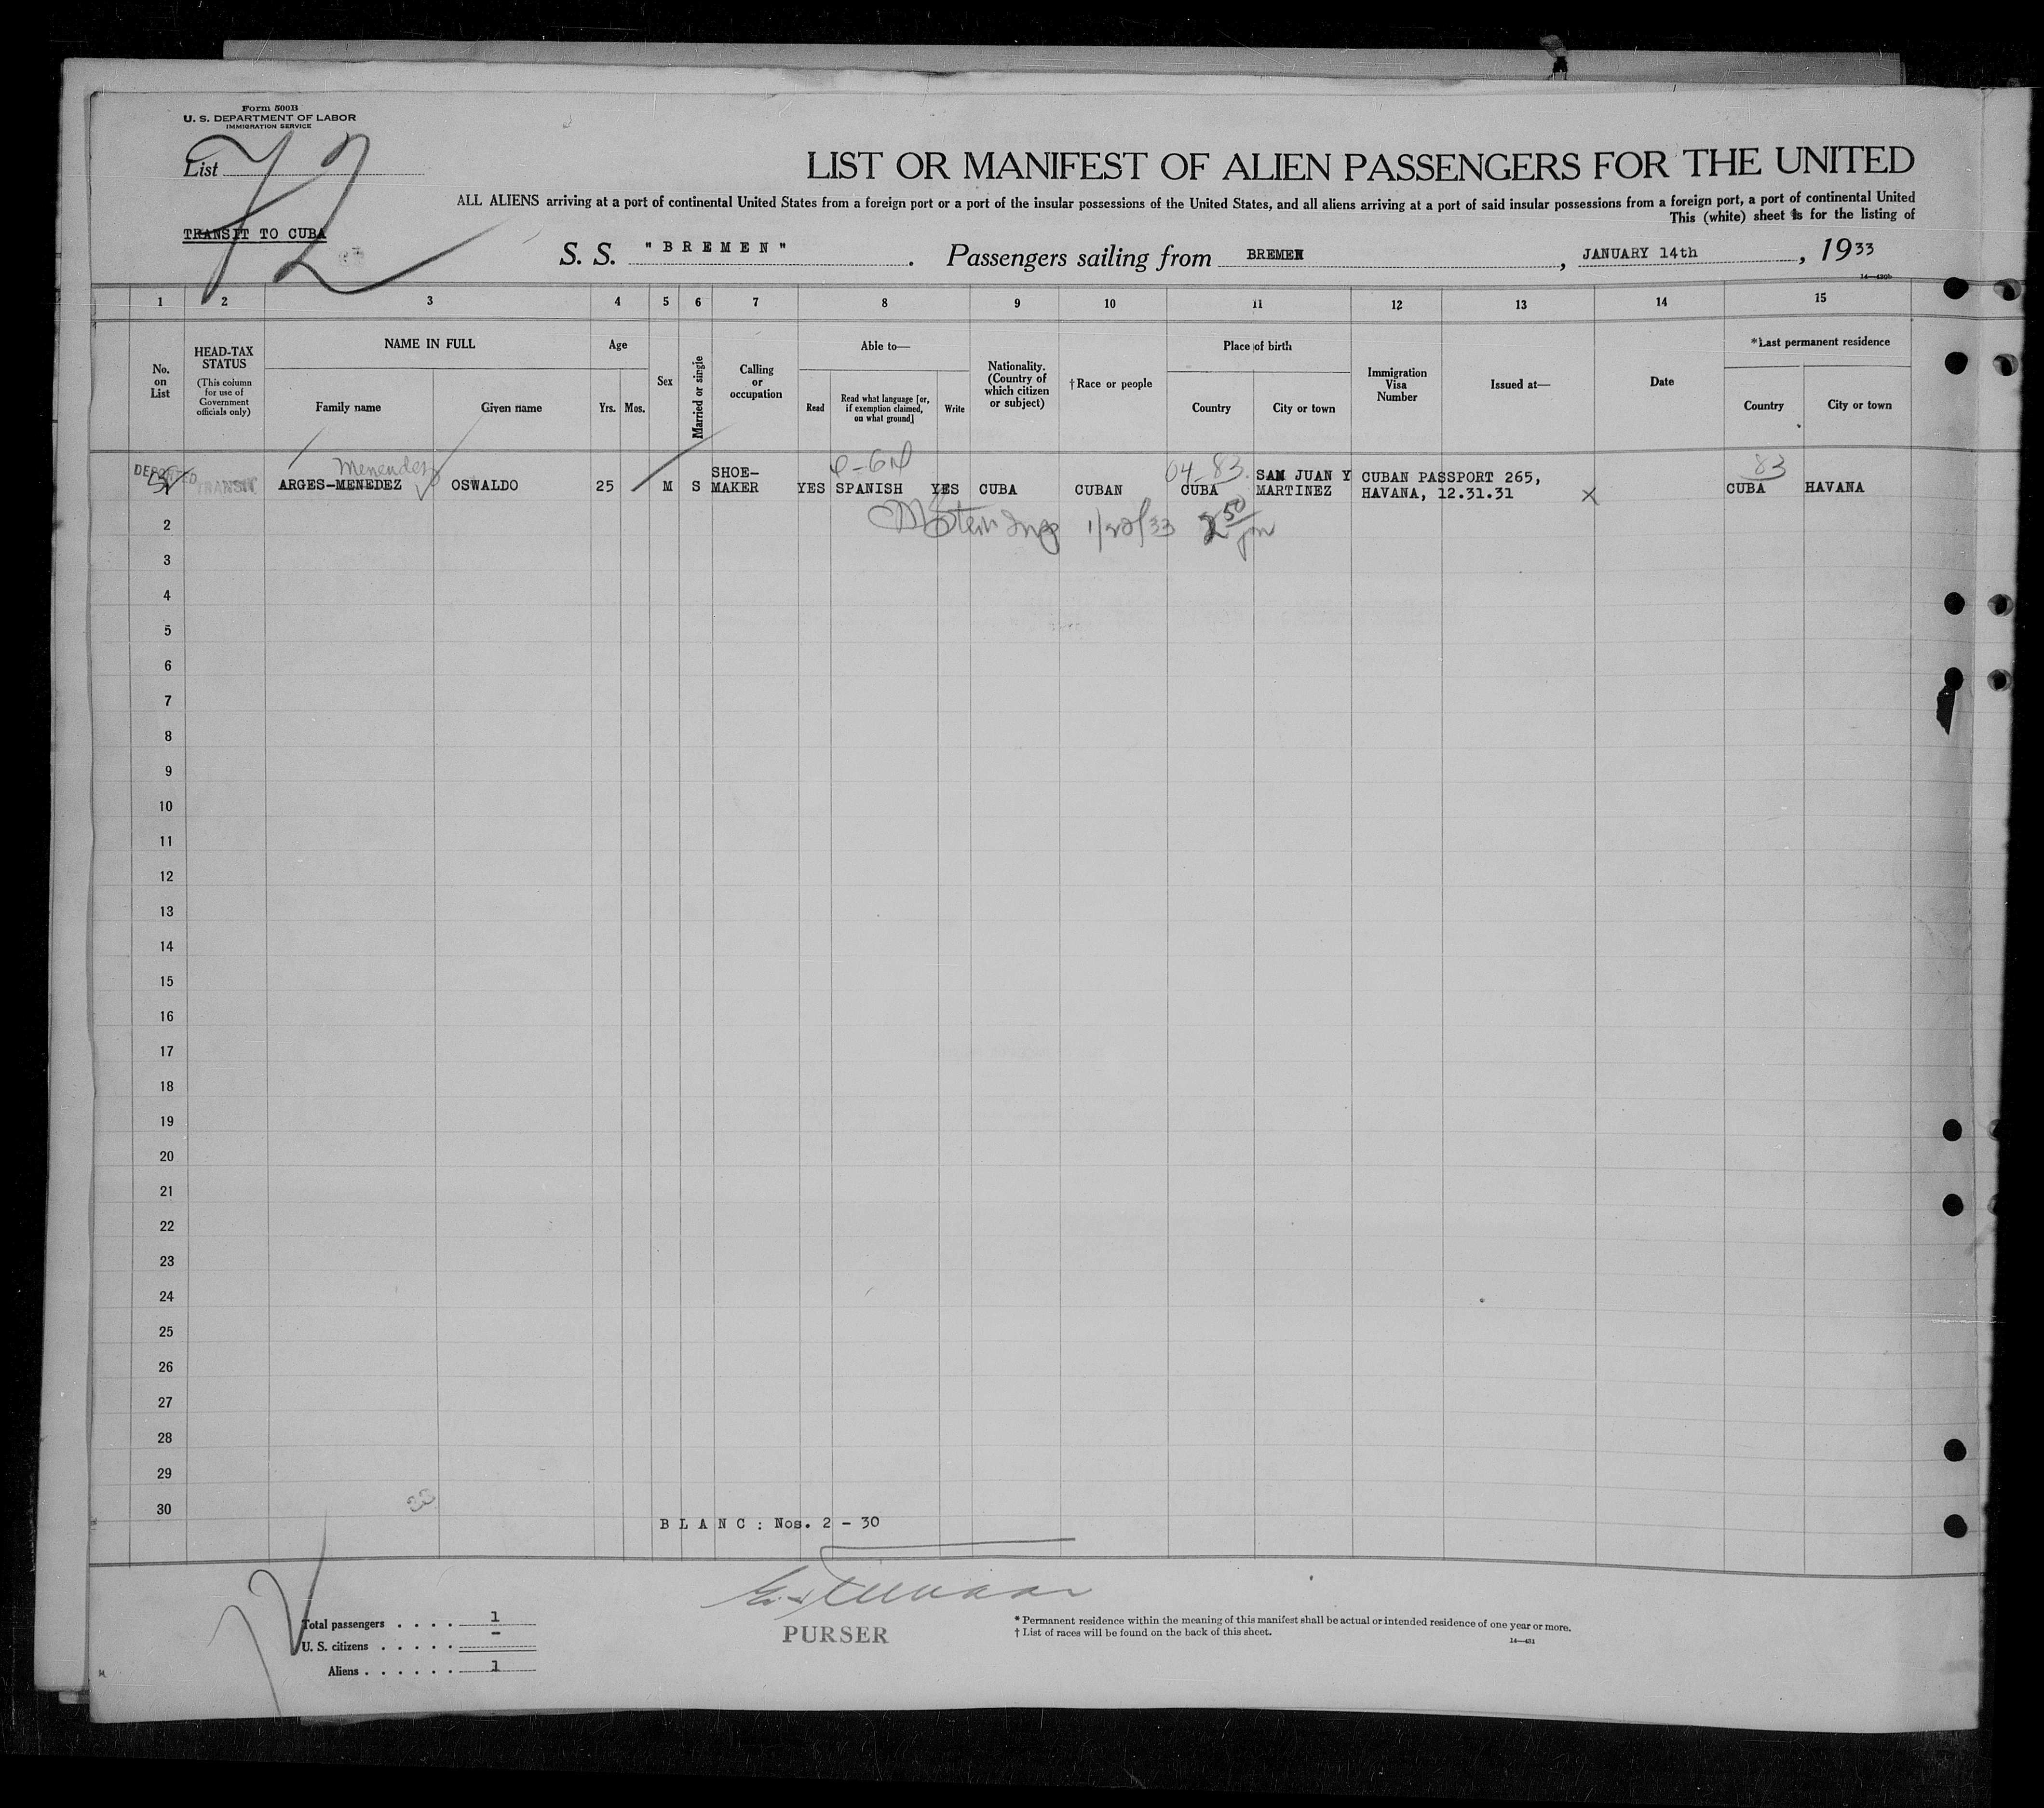 Form 500B
U. S. DEPARTMENT OF LABOR
IMMIGRATION SERVICE
List 72
TRANSIT TO CUBA
LIST OR MANIFEST OF ALIEN PASSENGERS FOR THE UNITED
ALL ALIENS arriving at a port of continental United States from a foreign port or a port of the insular possessions of the United States, and all aliens arriving at a port of said insular possessions from a foreign port, a port of continental United
This (white) sheet is for the listing of
S. S. "BREMEN". Passengers sailing from BREMEN, JANUARY 14th, 1933
14—430b
1 2 3 4 5 6 7 8 9 10 11 12 13 14 15
No. on List
HEAD-TAX STATUS
(This column for use of Government officials only)
NAME IN FULL
Family name Given name
Age
Yrs. Mos.
Sex
Married or single
Calling or occupation
Able to—
Read
Read what language [or, if exemption claimed, on what ground]
Write
Nationality. (Country of which citizen or subject)
†Race or people
Place of birth
Country City or town
Immigration Visa Number
Issued at—
Date
*Last permanent residence
Country City or town
Menendez 04-83 83
DEPORTED TRANSIT ARGES-MENEDEZ OSWALDO 25 M S SHOE-MAKER YES SPANISH YES CUBA CUBAN CUBA SAN JUAN Y MARTINEZ CUBAN PASSPORT 265, HAVANA, 12.31.31 X CUBA HAVANA
1/20/33 2 50 pm
2
3
4
5
6
7
8
9
10
11
12
13
14
15
16
17
18
19
20
21
22
23
24
25
26
27
28
29
30
BLANC: Nos. 2 - 30
PURSER
Total passengers . . . . 1
U. S. citizens . . . . . -
Aliens . . . . . . 1
* Permanent residence within the meaning of this manifest shall be actual or intended residence of one year or more.
† List of races will be found on the back of this sheet.
14—431